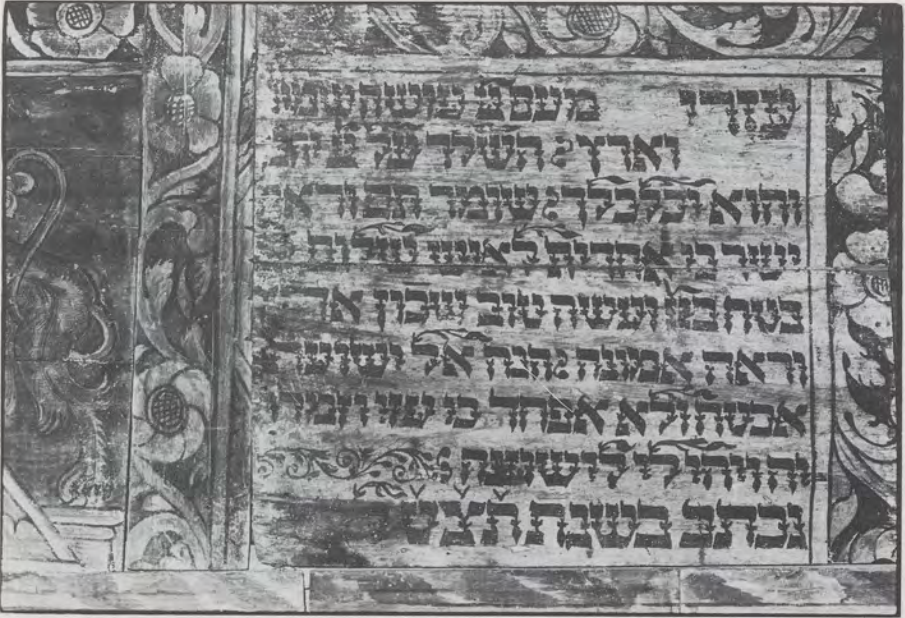 עזרי מעם יי עושה שמי
וארץ : השלך על יי יהב
והוא יכלכלך : שומר תם ורא
ישר כי אחרית לאיש שלום
בטח ביי ועשה טוב שכון אר
ורעה אמונה : הנה אל ישועתי
אבטח ולא אפחד כי עזי וזמרת
יה ויהי לי לישועה :
נכתב בשנת תצט